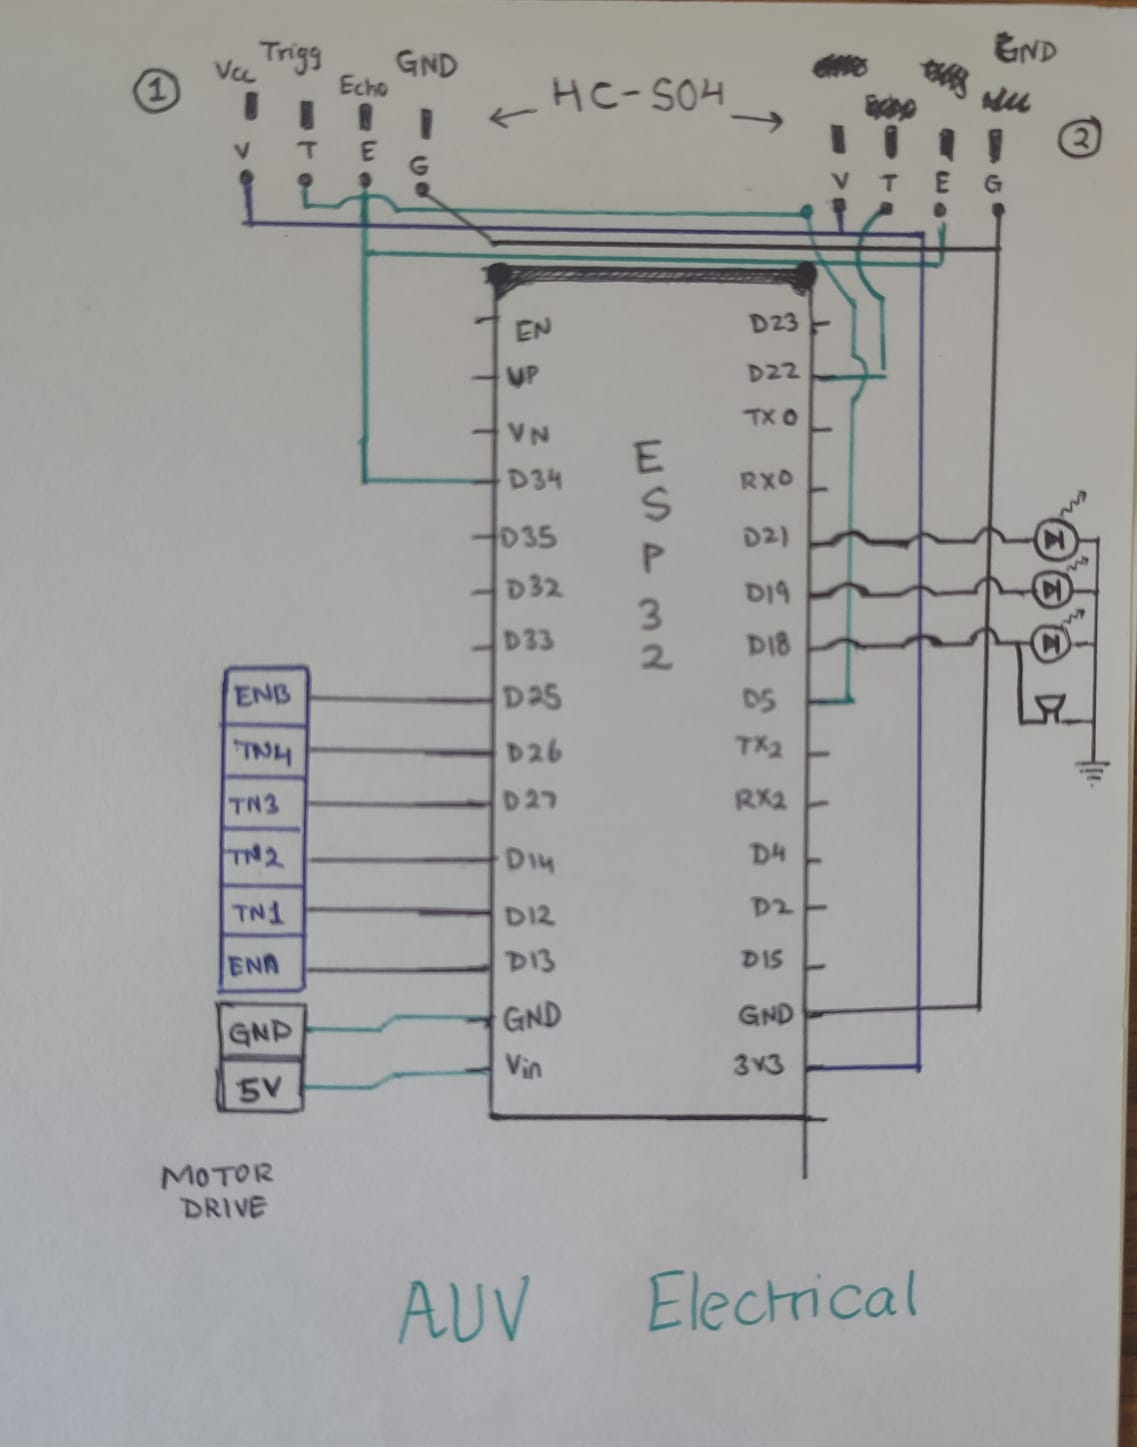 1
Vcc Trigg Echo GND
V T E G
← HC-SO4 →
GND
2
V T E G
EN
VP
VN
D34
D35
D32
D33
D25
D26
D27
D14
D12
D13
GND
Vin
ESP32
D23
D22
TX0
RX0
D21
D19
D18
D5
TX2
RX2
D4
D2
D15
GND
3V3
ENB
TN4
TN3
TN2
TN1
ENA
GND
5V
MOTOR
DRIVE
AUV Electrical